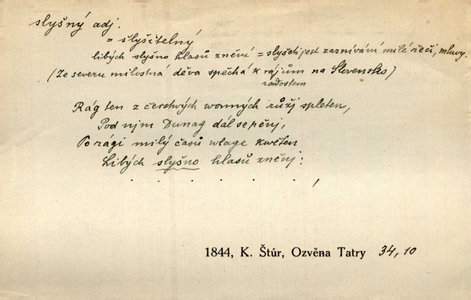 slyšný adj.
= slyšitelný
libých slyšno hlasů znění = slyšeti jest zaznívání milé řeči, mluvy.
(Ze severu milostna děva spěchá k rájům na Slovensko)
radostem
Rág ten z čerstwých wonných růžj spleten,
Pod njm Dunag dál se pěnj,
Po ragi milý časů wlage kwěten
Libých slyšno hlasů zněnj:
. . . . . . ,
1844, K. Štúr, Ozvěna Tatry 34, 10